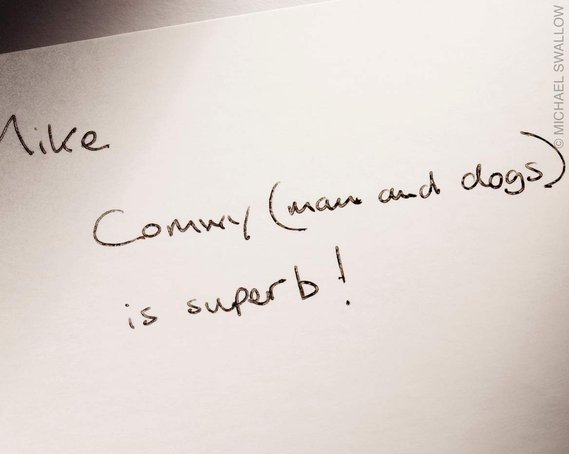 Mike
Conwy (man and dogs)
is superb!
© MICHAEL SWALLOW